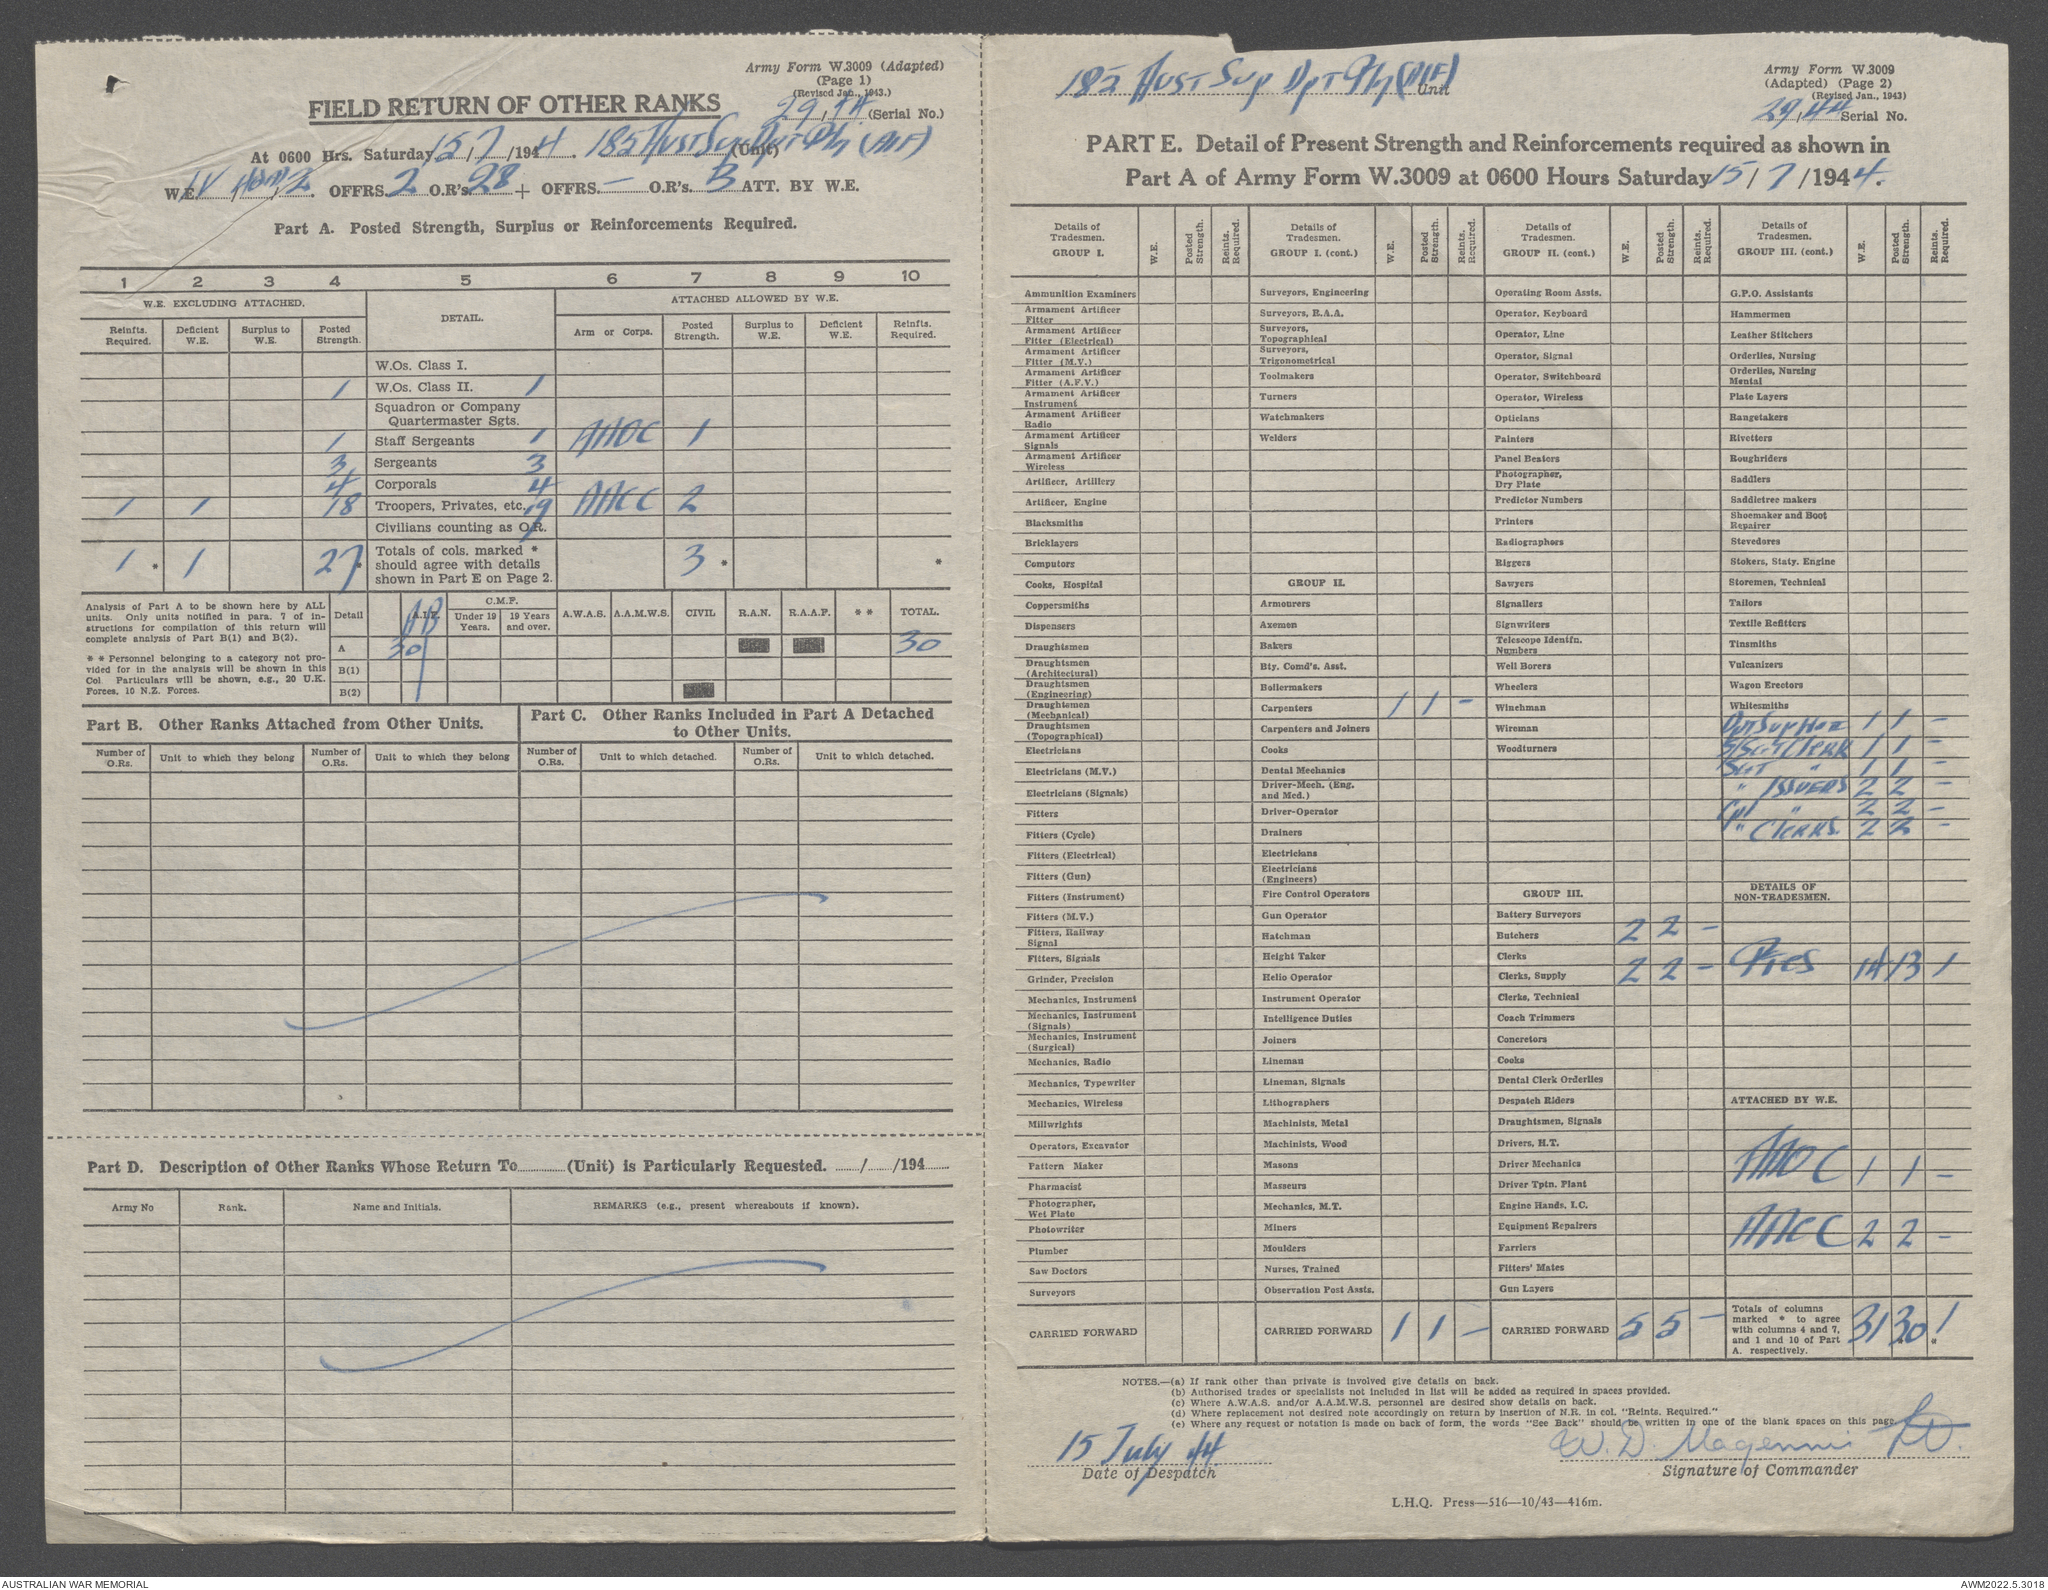 Army Form W.3009 (Adapted)
(Page 1)
(Revised Jan., 1943.)
FIELD RETURN OF OTHER RANKS
29/44 (Serial No.)
At 0600 Hrs. Saturday 15/7/1944. 182 Aust Sup Dpt Pl (AIF) (Unit)
W.E. IV / / 2. OFFRS. 2 O.R's. 28 + OFFRS. — O.R's. 3 ATT. BY W.E.
Part A. Posted Strength, Surplus or Reinforcements Required.
1 2 3 4 5 6 7 8 9 10
W.E. EXCLUDING ATTACHED. DETAIL. ATTACHED ALLOWED BY W.E.
Reinfts. Required. Deficient W.E. Surplus to W.E. Posted Strength. Arm or Corps. Posted Strength. Surplus to W.E. Deficient W.E. Reinfts. Required.
W.Os. Class I.
1 W.Os. Class II. 1
Squadron or Company
Quartermaster Sgts.
1 Staff Sergeants 1 AAOC 1
3 Sergeants 3
4 Corporals 4
1 1 18 Troopers, Privates, etc. 19 AACC 2
Civilians counting as O.R.
1 * 1 27 * Totals of cols. marked * should agree with details shown in Part E on Page 2. 3 * *
Analysis of Part A to be shown here by ALL units. Only units notified in para. 7 of instructions for compilation of this return will complete analysis of Part B(1) and B(2).
** Personnel belonging to a category not provided for in the analysis will be shown in this Col. Particulars will be shown, e.g., 20 U.K. Forces, 10 N.Z. Forces.
Detail A.I.F. C.M.F. Under 19 Years. 19 Years and over. A.W.A.S. A.A.M.W.S. CIVIL R.A.N. R.A.A.F. ** TOTAL.
A 30 30
B(1)
B(2)
Part B. Other Ranks Attached from Other Units.
Part C. Other Ranks Included in Part A Detached to Other Units.
Number of O.Rs. Unit to which they belong Number of O.Rs. Unit to which they belong Number of O.Rs. Unit to which detached. Number of O.Rs. Unit to which detached.
Part D. Description of Other Ranks Whose Return To (Unit) is Particularly Requested. / /194
Army No Rank. Name and Initials. REMARKS (e.g., present whereabouts if known).
182 Aust Sup Dpt Pl (AIF) Unit
Army Form W.3009
(Adapted) (Page 2)
(Revised Jan., 1943)
29/44 Serial No.
PART E. Detail of Present Strength and Reinforcements required as shown in
Part A of Army Form W.3009 at 0600 Hours Saturday 15/7/1944.
Details of Tradesmen. GROUP I. W.E. Posted Strength. Reints. Required.
Ammunition Examiners
Armament Artificer Fitter
Armament Artificer Fitter (Electrical)
Armament Artificer Fitter (M.V.)
Armament Artificer Fitter (A.F.V.)
Armament Artificer Instrument
Armament Artificer Radio
Armament Artificer Signals
Armament Artificer Wireless
Artificer, Artillery
Artificer, Engine
Blacksmiths
Bricklayers
Computors
Cooks, Hospital
Coppersmiths
Dispensers
Draughtsmen
Draughtsmen (Architectural)
Draughtsmen (Engineering)
Draughtsmen (Mechanical)
Draughtsmen (Topographical)
Electricians
Electricians (M.V.)
Electricians (Signals)
Fitters
Fitters (Cycle)
Fitters (Electrical)
Fitters (Gun)
Fitters (Instrument)
Fitters (M.V.)
Fitters, Railway Signal
Fitters, Signals
Grinder, Precision
Mechanics, Instrument
Mechanics, Instrument (Signals)
Mechanics, Instrument (Surgical)
Mechanics, Radio
Mechanics, Typewriter
Mechanics, Wireless
Millwrights
Operators, Excavator
Pattern Maker
Pharmacist
Photographer, Wet Plate
Photowriter
Plumber
Saw Doctors
Surveyors
CARRIED FORWARD
Details of Tradesmen. GROUP I. (cont.) W.E. Posted Strength. Reints. Required.
Surveyors, Engineering
Surveyors, R.A.A.
Surveyors, Topographical
Surveyors, Trigonometrical
Toolmakers
Turners
Watchmakers
Welders
GROUP II.
Armourers
Axemen
Bakers
Bty. Comd's. Asst.
Boilermakers
Carpenters 1 1 -
Carpenters and Joiners
Cooks
Dental Mechanics
Driver-Mech. (Eng. and Med.)
Driver-Operator
Drainers
Electricians
Electricians (Engineers)
Fire Control Operators
Gun Operator
Hatchman
Height Taker
Helio Operator
Instrument Operator
Intelligence Duties
Joiners
Lineman
Lineman, Signals
Lithographers
Machinists, Metal
Machinists, Wood
Masons
Masseurs
Mechanics, M.T.
Miners
Moulders
Nurses, Trained
Observation Post Assts.
CARRIED FORWARD 1 1 —
Details of Tradesmen. GROUP II. (cont.) W.E. Posted Strength. Reints. Required.
Operating Room Assts.
Operator, Keyboard
Operator, Line
Operator, Signal
Operator, Switchboard
Operator, Wireless
Opticians
Painters
Panel Beaters
Photographer, Dry Plate
Predictor Numbers
Printers
Radiographers
Riggers
Sawyers
Signallers
Signwriters
Telescope Identfn. Numbers
Well Borers
Wheelers
Winchman
Wireman
Woodturners
GROUP III.
Battery Surveyors
Butchers 2 2 -
Clerks
Clerks, Supply 2 2 -
Clerks, Technical
Coach Trimmers
Concretors
Cooks
Dental Clerk Orderlies
Despatch Riders
Draughtsmen, Signals
Drivers, H.T.
Driver Mechanics
Driver Tptn. Plant
Engine Hands, I.C.
Equipment Repairers
Farriers
Fitters' Mates
Gun Layers
CARRIED FORWARD 5 5 -
Details of Tradesmen. GROUP III. (cont.) W.E. Posted Strength. Reints. Required.
G.P.O. Assistants
Hammermen
Leather Stitchers
Orderlies, Nursing
Orderlies, Nursing Mental
Plate Layers
Rangetakers
Rivetters
Roughriders
Saddlers
Saddletree makers
Shoemaker and Boot Repairer
Stevedores
Stokers, Staty. Engine
Storemen, Technical
Tailors
Textile Refitters
Tinsmiths
Vulcanizers
Wagon Erectors
Whitesmiths
Dpt Sup 1 1 -
S/Sgt Clerk 1 1 -
Sgt " 1 1 -
" Issuers 2 2 -
Cpl " 2 2 -
" Clerks. 2 2 -
DETAILS OF NON-TRADESMEN.
Ptes 14 13 1
ATTACHED BY W.E.
AAOC 1 1 -
AACC 2 2 -
Totals of columns marked * to agree with columns 4 and 7, and 1 and 10 of Part A. respectively. 31 30 1 *
NOTES.—(a) If rank other than private is involved give details on back.
(b) Authorised trades or specialists not included in list will be added as required in spaces provided.
(c) Where A.W.A.S. and/or A.A.M.W.S. personnel are desired show details on back.
(d) Where replacement not desired note accordingly on return by insertion of N.R. in col. "Reints. Required."
(e) Where any request or notation is made on back of form, the words "See Back" should be written in one of the blank spaces on this page.
15 July 44
Date of Despatch
W. D. Magennis Lt.
Signature of Commander
L.H.Q. Press—516—10/43—416m.
AUSTRALIAN WAR MEMORIAL
AWM2022.5.3018